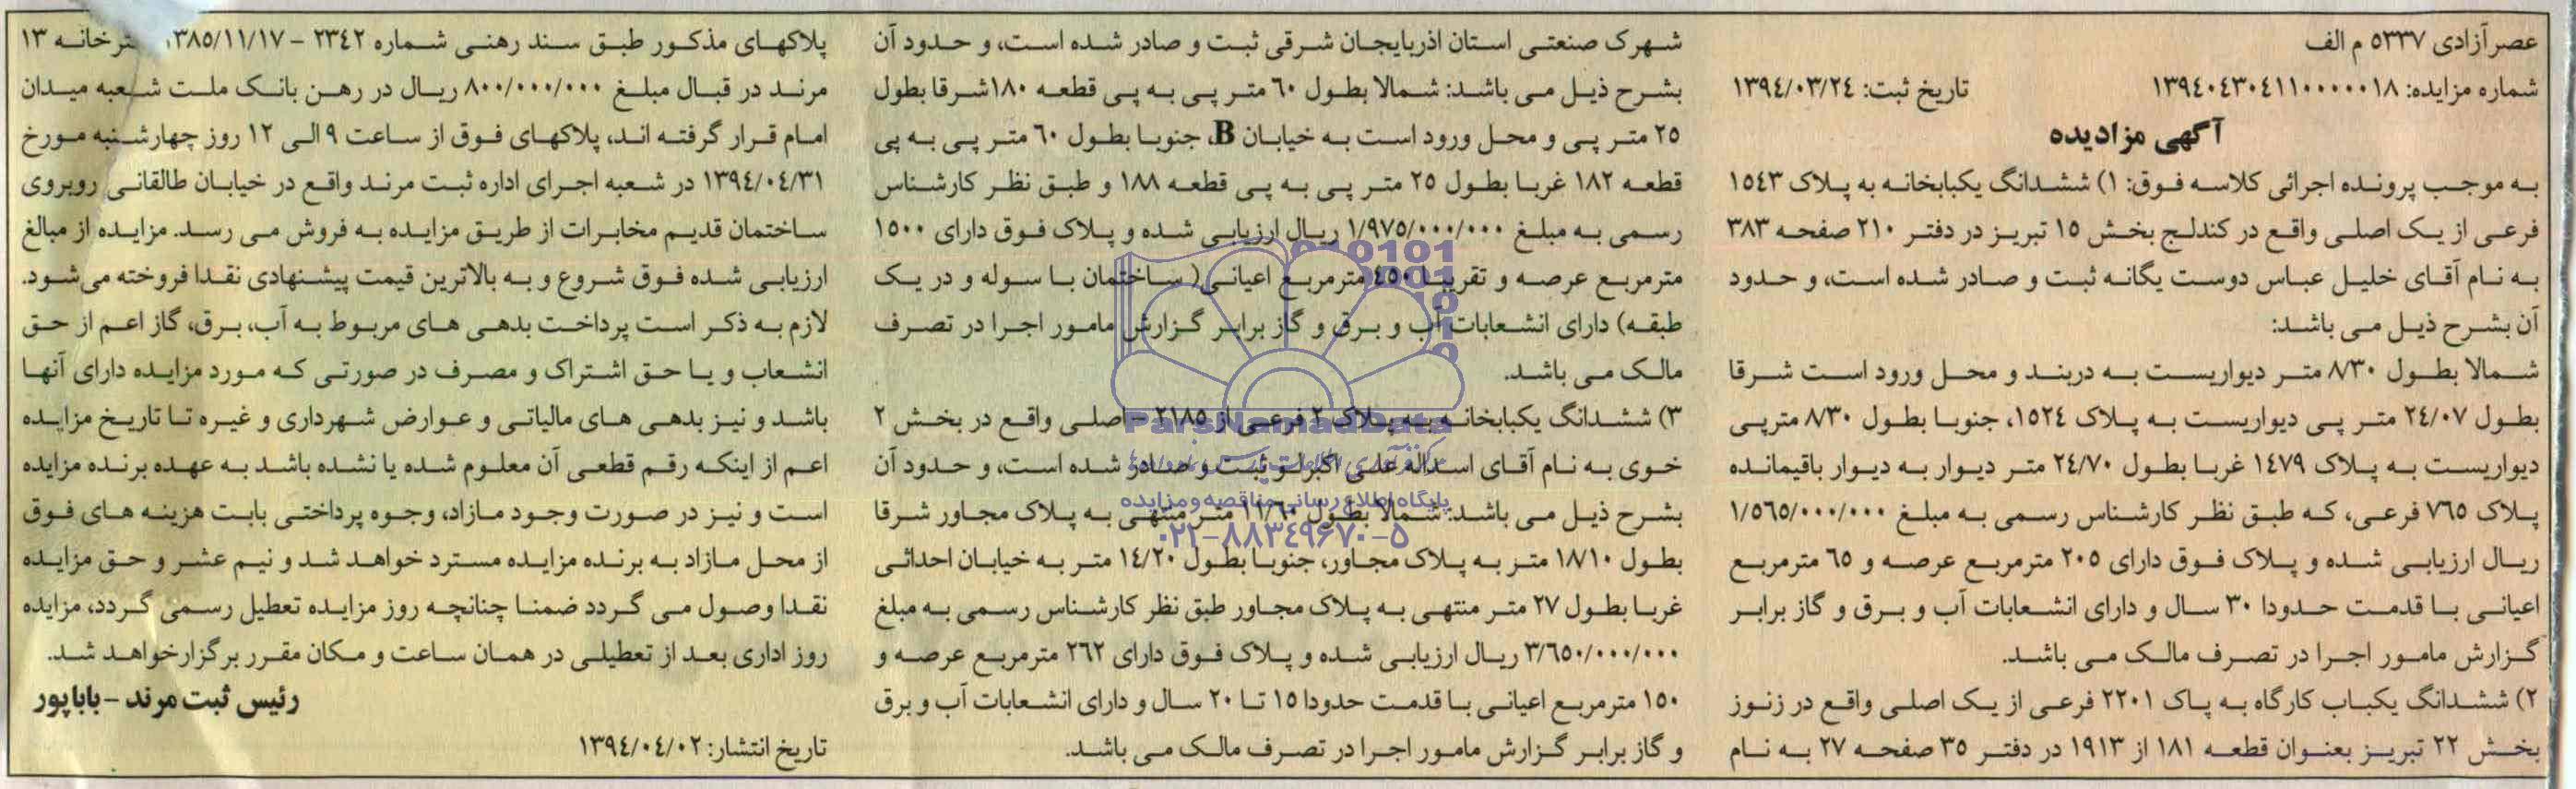 عصرآزادی ۵۳۳۷ م الف
شماره مزایده: ۱۳۹۴۰۴۳۰۴۱۱۰۰۰۰۰۱۸ تاریخ ثبت: ۱۳۹۴/۰۳/۲۴
آگهی مزادیده
به موجب پرونده اجرائی کلاسه فوق: ۱) ششدانگ یکبابخانه به پلاک ۱۵۴۳
فرعی از یک اصلی واقع در کندلج بخش ۱۵ تبریز در دفتر ۲۱۰ صفحه ۳۸۳
به نام آقای خلیل عباس دوست یگانه ثبت و صادر شده است، و حدود
آن بشرح ذیل می باشد:
شمالا بطول ۸/۳۰ متر دیواریست به دربند و محل ورود است شرقا
بطول ۲۴/۰۷ متر پی دیواریست به پلاک ۱۵۲۴، جنوبا بطول ۸/۳۰ مترپی
دیواریست به پلاک ۱۴۷۹ غربا بطول ۲۴/۷۰ متر دیوار به دیوار باقیمانده
پلاک ۷۶۵ فرعی، که طبق نظر کارشناس رسمی به مبلغ ۱/۵۶۵/۰۰۰/۰۰۰
ریال ارزیابی شده و پلاک فوق دارای ۲۰۵ مترمربع عرصه و ۶۵ مترمربع
اعیانی با قدمت حدودا ۳۰ سال و دارای انشعابات آب و برق و گاز برابر
گزارش مامور اجرا در تصرف مالک می باشد.
۲) ششدانگ یکباب کارگاه به پاک ۲۲۰۱ فرعی از یک اصلی واقع در زنوز
بخش ۲۲ تبریز بعنوان قطعه ۱۸۱ از ۱۹۱۳ در دفتر ۳۵ صفحه ۲۷ به نام
شهرک صنعتی استان اذربایجان شرقی ثبت و صادر شده است، و حدود آن
بشرح ذیل می باشد: شمالا بطول ۶۰ متر پی به پی قطعه ۱۸۰شرقا بطول
۲۵ متر پی و محل ورود است به خیابان B، جنوبا بطول ۶۰ متر پی به پی
قطعه ۱۸۲ غربا بطول ۲۵ متر پی به پی قطعه ۱۸۸ و طبق نظر کارشناس
رسمی به مبلغ ۱/۹۷۵/۰۰۰/۰۰۰ ریال ارزیابی شده و پلاک فوق دارای ۱۵۰۰
مترمربع عرصه و تقریبا ۴۵۰ مترمربع اعیانی( ساختمان با سوله و در یک
طبقه) دارای انشعابات آب و برق و گاز برابر گزارش مامور اجرا در تصرف
مالک می باشد.
۳) ششدانگ یکبابخانه به پلاک ۲ فرعی از ۲۱۸۵ - اصلی واقع در بخش ۲
خوی به نام آقای اسداله علی اکبرلو ثبت و صادر شده است، و حدود آن
بشرح ذیل می باشد: شمالا بطول ۱۱/۶۰ متر منتهی به پلاک مجاور شرقا
بطول ۱۸/۱۰ متر به پلاک مجاور، جنوبا بطول ۱۴/۲۰ متر به خیابان احداثی
غربا بطول ۲۷ متر منتهی به پلاک مجاور طبق نظر کارشناس رسمی به مبلغ
۳/۶۵۰/۰۰۰/۰۰۰ ریال ارزیابی شده و پلاک فوق دارای ۲۶۲ مترمربع عرصه و
۱۵۰ مترمربع اعیانی با قدمت حدودا ۱۵ تا ۲۰ سال و دارای انشعابات آب و برق
و گاز برابر گزارش مامور اجرا در تصرف مالک می باشد.
پلاکهای مذکور طبق سند رهنی شماره ۲۳۴۲ - ۱۳۸۵/۱۱/۱۷ ۱۳
مرند در قبال مبلغ ۸۰۰/۰۰۰/۰۰۰ ریال در رهن بانک ملت شعبه میدان
امام قرار گرفته اند، پلاکهای فوق از ساعت ۹ الی ۱۲ روز چهارشنبه مورخ
۱۳۹۴/۰۴/۳۱ در شعبه اجرای اداره ثبت مرند واقع در خیابان طالقانی روبروی
ساختمان قدیم مخابرات از طریق مزایده به فروش می رسد. مزایده از مبالغ
ارزیابی شده فوق شروع و به بالاترین قیمت پیشنهادی نقدا فروخته می شود.
لازم به ذکر است پرداخت بدهی های مربوط به آب، برق، گاز اعم از حق
انشعاب و یا حق اشتراک و مصرف در صورتی که مورد مزایده دارای آنها
باشد و نیز بدهی های مالیاتی و عوارض شهرداری و غیره تا تاریخ مزایده
اعم از اینکه رقم قطعی آن معلوم شده یا نشده باشد به عهده برنده مزایده
است و نیز در صورت وجود مازاد، وجوه پرداختی بابت هزینه های فوق
از محل مازاد به برنده مزایده مسترد خواهد شد و نیم عشر و حق مزایده
نقدا وصول می گردد ضمنا چنانچه روز مزایده تعطیل رسمی گردد، مزایده
روز اداری بعد از تعطیلی در همان ساعت و مکان مقرر برگزارخواهد شد.
رئیس ثبت مرند - باباپور
تاریخ انتشار: ۱۳۹۴/۰۴/۰۲
ParsNamadData
پایگاه اطلاع رسانی مناقصه و مزایده
۰۲۱-۸۸۳۴۹۶۷۰-۵